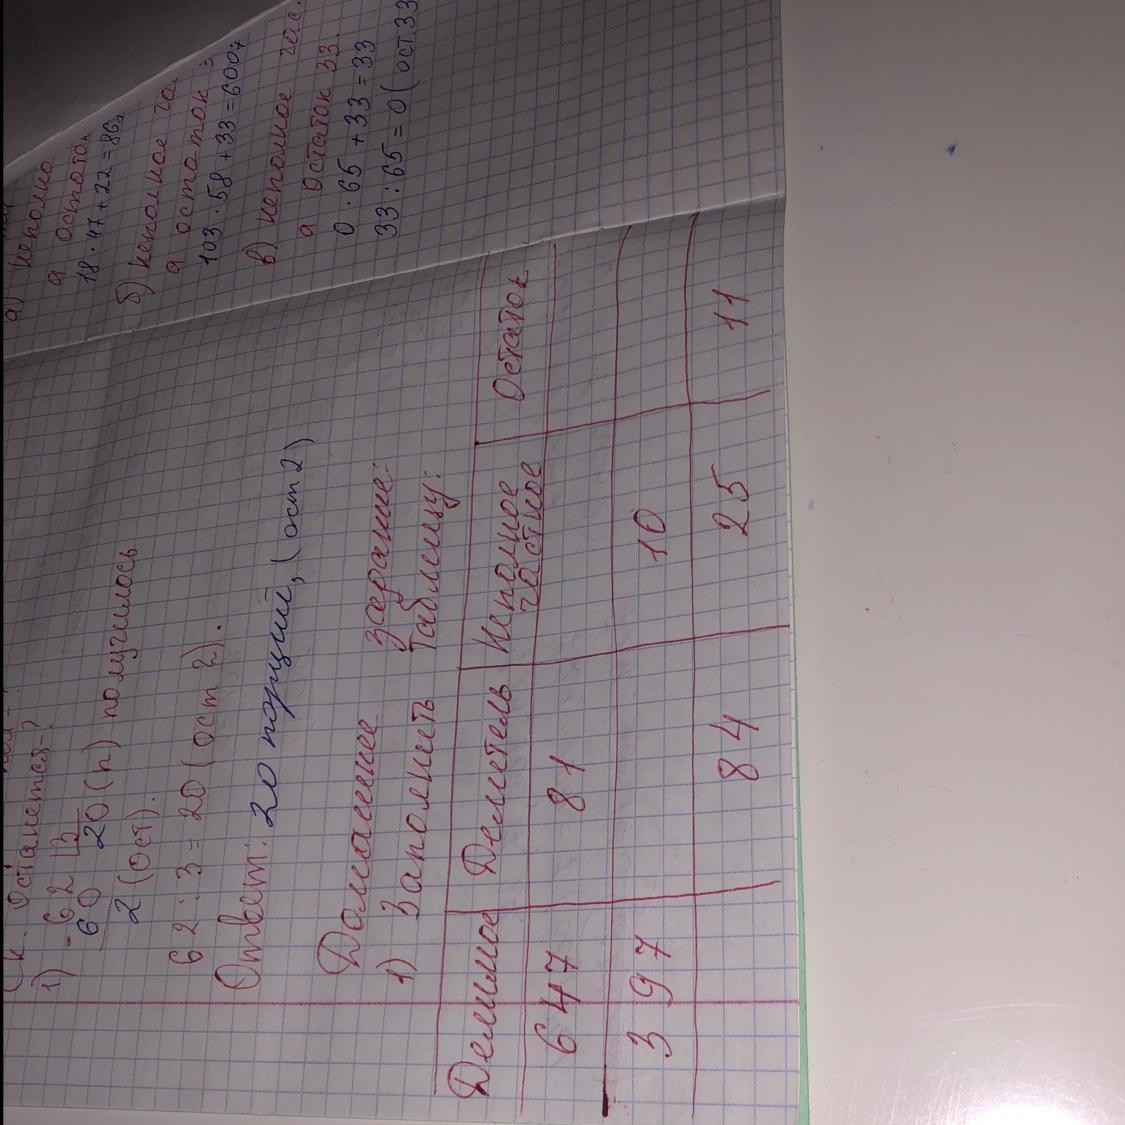 Останется?
1) - 62 | 3
60 20 (п) получилось
2 (ост).
62 : 3 = 20 (ост 2).
Ответ: 20 порций, (ост 2)
Домашнее задание:
1) Заполнить таблицу:
Делимое Делитель Неполное частное Остаток
647 81
397 10
84 25 11
а)
а остаток
18 · 47 + 22 = 868
б) неполное
а остаток
103 · 58 + 33 = 6007
в) неполное
а остаток 33.
0 · 65 + 33 = 33
33 : 65 = 0 (ост. 33